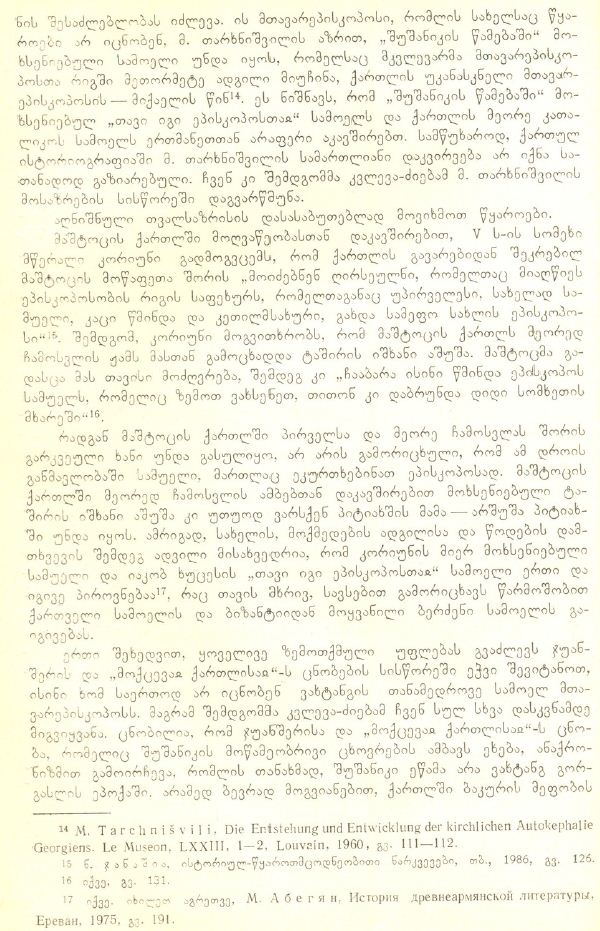 ნის შესაძლებლობას იძლევა. ის მთავარეპისკოპოსი, რომლის სახელსაც წყა-
როები არ იცნობენ, მ. თარხნიშვილის აზრით, „შუშანიკის წამებაში“ მო-
ხსენიებული სამოელი უნდა იყოს, რომელსაც მკვლევარმა მთავარეპისკო-
პოსთა რიგში მეთორმეტე ადგილი მიუჩინა, ქართლის უკანასკნელი მთავარ-
ეპისკოპოსის — მიქაელის წინ¹⁴. ეს ნიშნავს, რომ „შუშანიკის წამებაში“ მო-
ხსენიებულ „თავი იგი ეპისკოპოსთაჲ“ სამოელს და ქართლის მეორე კათა-
ლიკოს სამოელს ერთმანეთთან არაფერი აკავშირებთ. სამწუხაროდ, ქართულ
ისტორიოგრაფიაში მ. თარხნიშვილის სამართლიანი დაკვირვება არ იქნა სა-
თანადოდ გაზიარებული. ჩვენ კი შემდგომმა კვლევა-ძიებამ მ. თარხნიშვილის
მოსაზრების სისწორეში დაგვარწმუნა.
აღნიშნული თვალსაზრისის დასასაბუთებლად მოვიხმოთ წყაროები.
მაშტოცის ქართლში მოღვაწეობასთან დაკავშირებით, V ს-ის სომეხი
მწერალი კორიუნი გადმოგვცემს, რომ ქართლის გავარებიდან შეკრებილ
მაშტოცის მოწაფეთა შორის „მოიძებნენ ღირსეულნი, რომელთაც მიაღწიეს
ეპისკოპოსობის რიგის საფეხურს, რომელთაგანაც უპირველესი, სახელად სა-
მუელი, კაცი წმინდა და კეთილმსახური, გახდა სამეფო სახლის ეპისკოპო-
სი“¹⁵. შემდგომ, კორიუნი მოგვითხრობს, რომ მაშტოცის ქართლს მეორედ
ჩამოსვლის ჟამს მასთან გამოცხადდა ტაშირის იშხანი აშუშა. მაშტოცმა გა-
დასცა მას თავისი მოძღვრება, შემდეგ კი „ჩააბარა ისინი წმინდა ეპისკოპოს
სამუელს, რომელიც ზემოთ ვახსენეთ, თითონ კი დაბრუნდა დიდი სომხეთის
მხარეში“¹⁶.
რადგან მაშტოცის ქართლში პირველსა და მეორე ჩამოსვლას შორის
გარკვეული ხანი უნდა გასულიყო, არ არის გამორიცხული, რომ ამ დროის
განმავლობაში სამუელი, მართლაც ეკურთხებინათ ეპისკოპოსად. მაშტოცის
ქართლში მეორედ ჩამოსვლის ამბებთან დაკავშირებით მოხსენიებული ტა-
შირის იშხანი აშუშა კი უთუოდ ვარსქენ პიტიახშის მამა — არშუშა პიტიახ-
ში უნდა იყოს. ამრიგად, სახელის, მოქმედების ადგილისა და წოდების დამ-
თხვევის შემდეგ ადვილი მისახვედრია, რომ კორიუნის მიერ მოხსენიებული
სამუელი და იაკობ ხუცესის „თავი იგი ეპისკოპოსთაჲ“ სამოელი ერთი და
იგივე პიროვნებაა¹⁷, რაც თავის მხრივ, სავსებით გამორიცხავს წარმოშობით
ქართველი სამოელის და ბიზანტიიდან მოყვანილი ბერძენი სამოელის გა-
იგივებას.
ერთი შეხედვით, ყოველივე ზემოთქმული უფლებას გვაძლევს ჯუან-
შერის და „მოქცევაჲ ქართლისაჲ“-ს ცნობების სისწორეში ეჭვი შევიტანოთ,
ისინი ხომ საერთოდ არ იცნობენ ვახტანგის თანამედროვე სამოელ მთა-
ვარეპისკოპოსს. მაგრამ შემდგომმა კვლევა-ძიებამ ჩვენ სულ სხვა დასკვნამდე
მიგვიყვანა. ცნობილია, რომ ჯუანშერისა და „მოქცევაჲ ქართლისაჲ“-ს ცნო-
ბა, რომელიც შუშანიკის მოწამეობრივი ცხოვრების ამბავს ეხება, ანაქრო-
ნიზმით გამოირჩევა, რომლის თანახმად, შუშანიკი ეწამა არა ვახტანგ გორ-
გასლის ეპოქაში. არამედ ბევრად მოგვიანებით, ქართლში ბაკურის მეფობის
¹⁴ M. Tarchnišvili, Die Entstehung und Entwicklung der kirchlichen Autokephalie
Georgiens. Le Museon, LXXIII, 1—2, Louvain, 1960, გვ. 111—112.
¹⁵ ნ. ჯანაშია, ისტორიულ-წყაროთმცოდნეობითი ნარკვევები, თბ., 1986, გვ. 126.
¹⁶ იქვე, გვ. 131.
¹⁷ იქვე. იხილეთ აგრეთვე, М. Абегян, История древнеармянской литературы,
Ереван, 1975, გვ. 191.